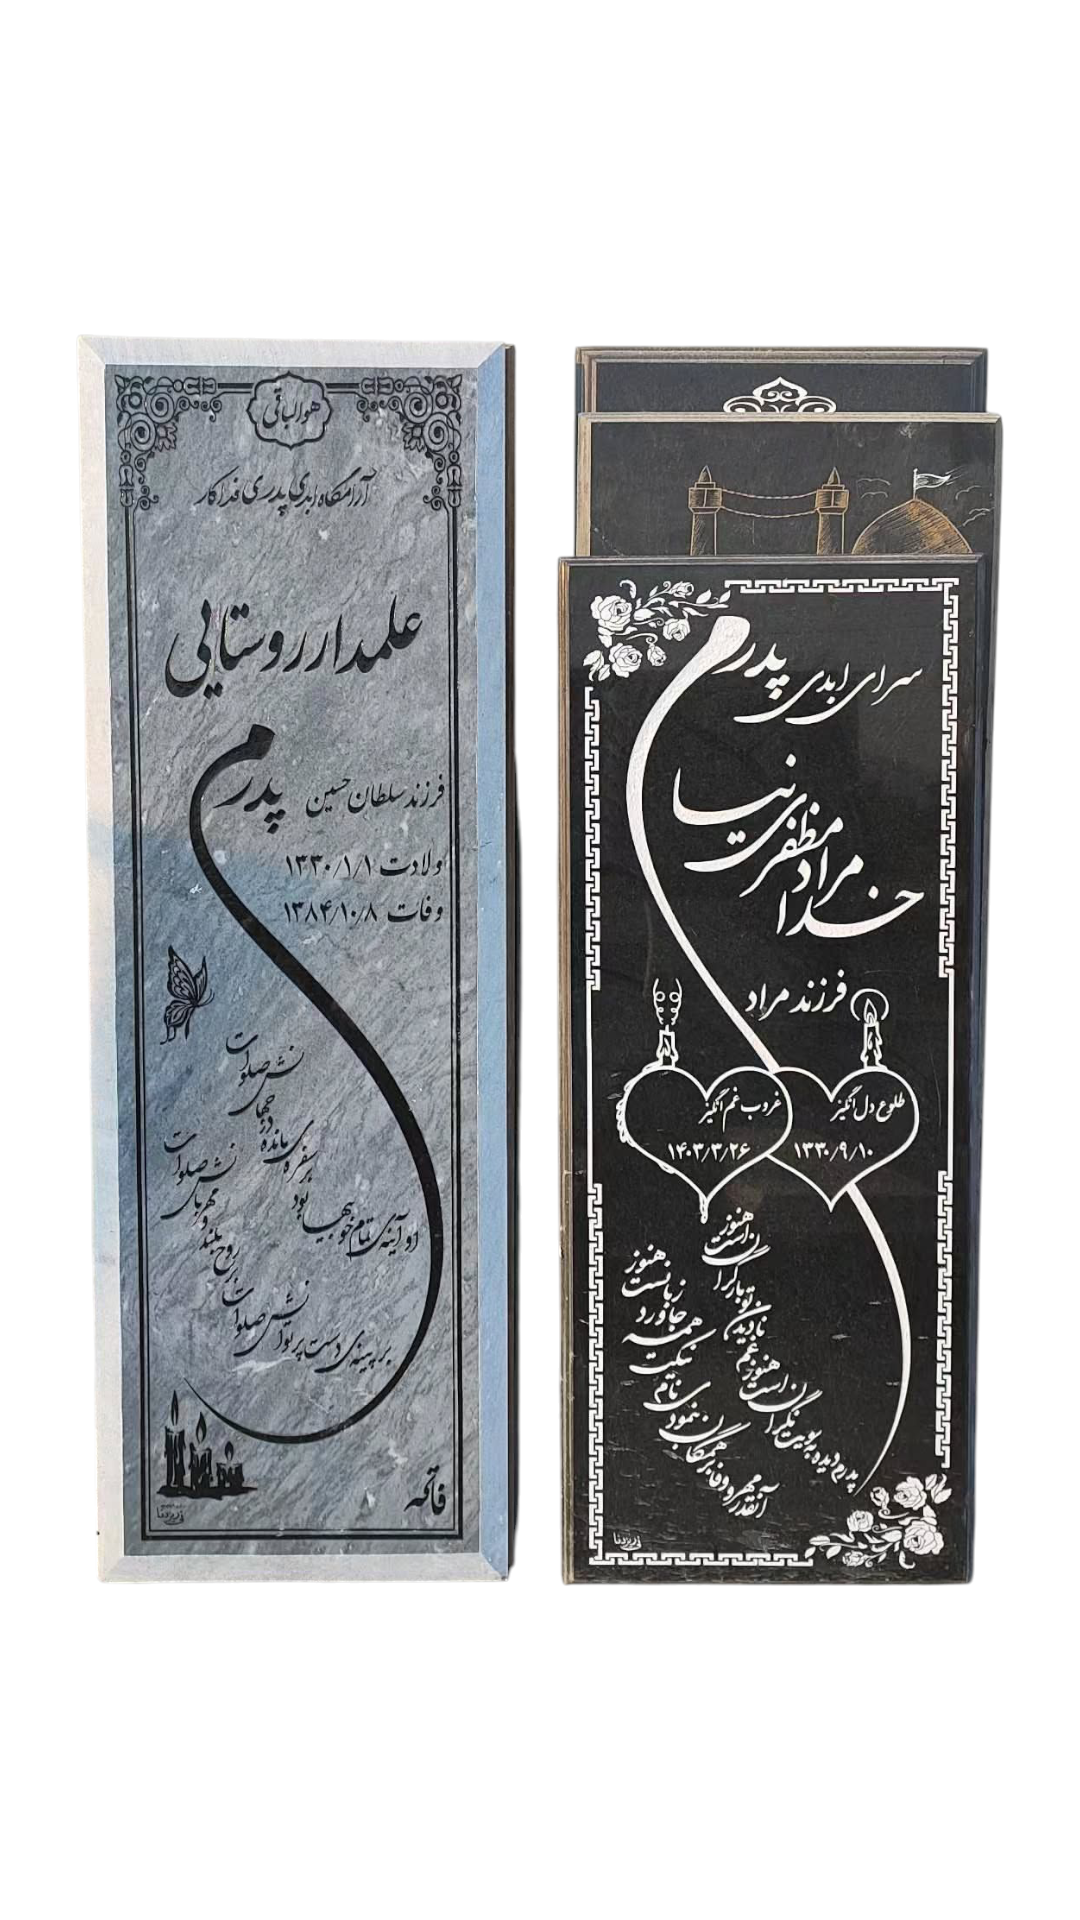 هوالباقی
آرامگاه ابدی پدری فداکار
علمدار روستایی
فرزند سلطان حسین
پدرم
ولادت ۱۳۳۰/۱/۱
وفات ۱۳۸۴/۱۰/۸
او آینه‌ی تمام خوبیها بود
بر سفره‌ی مانده در
نش صلوات
بر پینه‌ی دست پر توانش صلوات
بر روح بلند و مهربانش صلوات
فاتحه
سرای ابدی پدرم
خدامراد مظفری نیا
فرزند مراد
طلوع دل انگیز
۱۳۳۰/۹/۱۰
غروب غم انگیز
۱۴۰۳/۳/۲۶
پدرم دیده بسویت نگران است هنوز
غم نادیدن تو بار گران است هنوز
آنقدر مهر و وفا بر همگان بنمودی
نام نیکت همه جا ورد زبانست هنوز